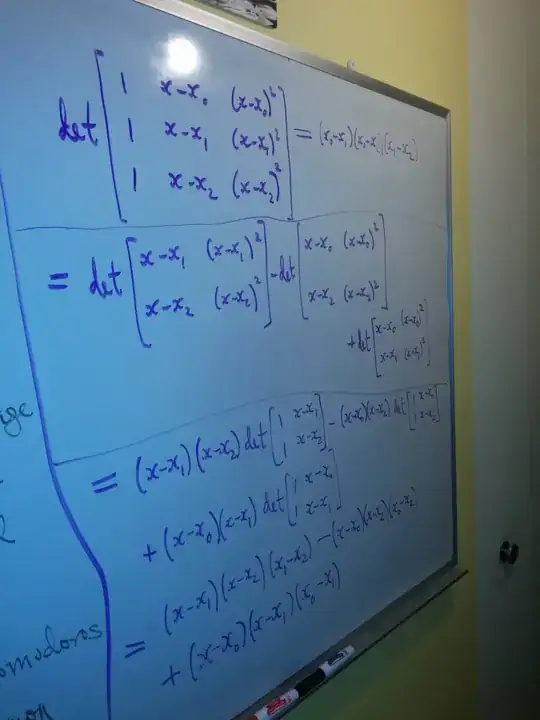 det [ 1 x-x₀ (x-x₀)² ; 1 x-x₁ (x-x₁)² ; 1 x-x₂ (x-x₂)² ] = (x₀-x₁)(x₀-x₂)(x₁-x₂)
= det [ x-x₁ (x-x₁)² ; x-x₂ (x-x₂)² ] - det [ x-x₀ (x-x₀)² ; x-x₂ (x-x₂)² ]
+ det [ x-x₀ (x-x₀)² ; x-x₁ (x-x₁)² ]
= (x-x₁)(x-x₂) det [ 1 x-x₁ ; 1 x-x₂ ] - (x-x₀)(x-x₂) det [ 1 x-x₀ ; 1 x-x₂ ]
+ (x-x₀)(x-x₁) det [ 1 x-x₀ ; 1 x-x₁ ]
= (x-x₁)(x-x₂)(x₁-x₂) - (x-x₀)(x-x₂)(x₀-x₂)
+ (x-x₀)(x-x₁)(x₀-x₁)